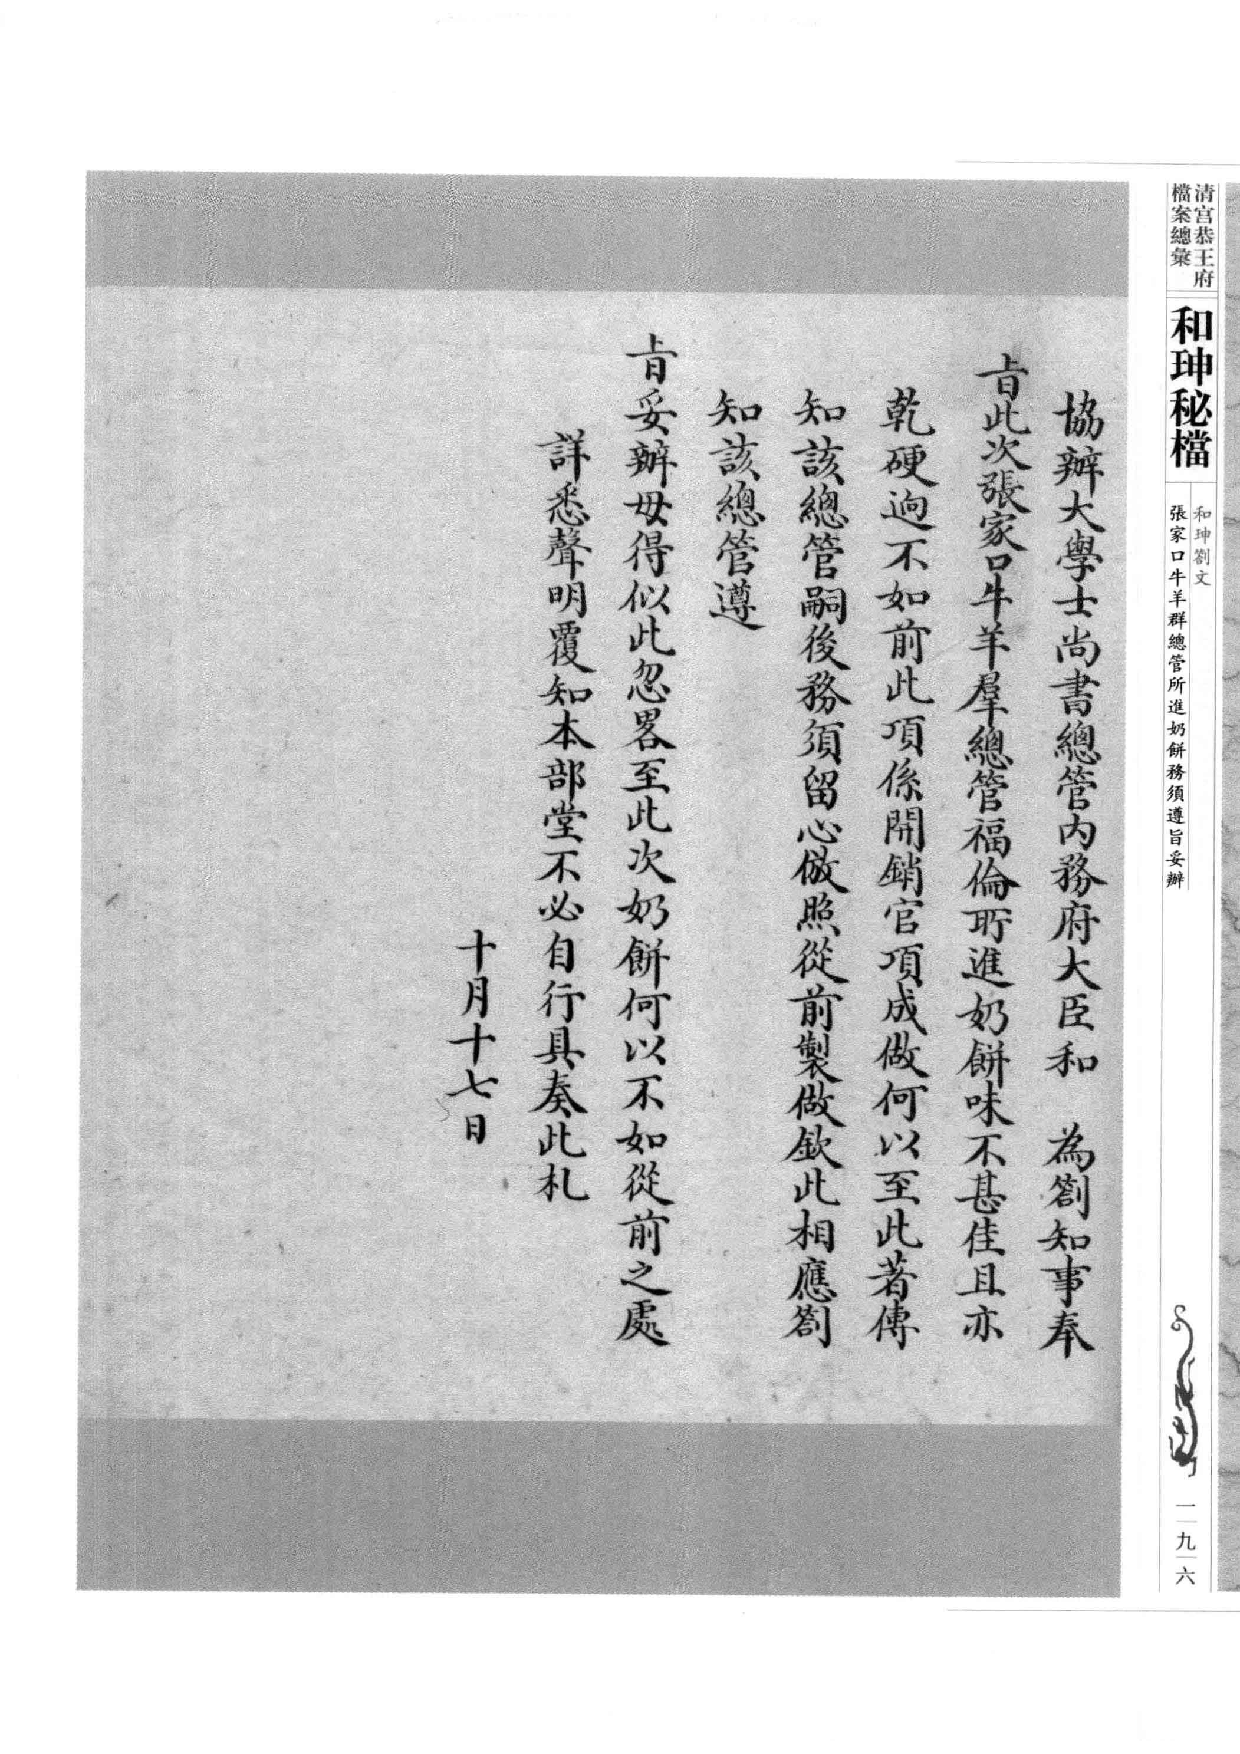 清宮恭王府
檔案總彙
和珅秘檔
和珅劄文
張家口牛羊群總管所進奶餅務須遵旨妥辦
一九六
協辦大學士尚書總管内務府大臣和　為劄知事奉
旨此次張家口牛羊羣總管福倫所進奶餅味不甚佳且亦
乾硬逈不如前此項係開銷官項成做何以至此著傳
知該總管嗣後務須留心倣照從前製做欽此相應劄
知該總管遵
旨妥辦毋得似此忽畧至此次奶餅何以不如從前之處
詳悉聲明覆知本部堂不必自行具奏此札
十月十七日